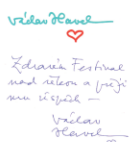 Václav Havel
Zdravím Festival
nad řekou a přeji
mu úspěch –
Václav
Havel